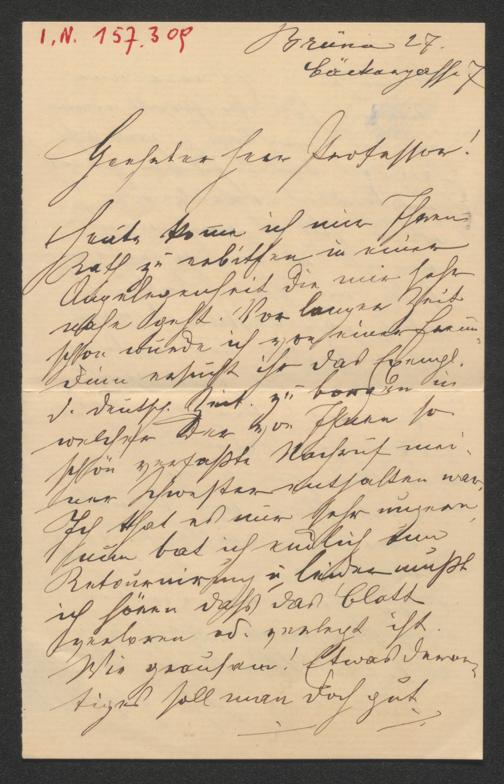 I.N. 157.309
Brünn 27.
Bäckergasse 7
Geehrter Herr Professor!
Heute komme ich mir Ihren
Rath zu erbitten in einer
Angelegenheit die mir sehr
nahe geht. Vor langer Zeit
schon wurde ich von einer Freun-
dinn ersucht ihr das Exempl.
d. deutsch. Zeit. zu borgen in
welcher der von Ihnen so
schön verfaßte Nachruf mei-
ner Schwester enthalten war.
Ich that es nur sehr ungern,
nun bat ich endlich um
Retournirung u. leider mußt
ich hören daß das Blatt
verloren od. verlegt ist.
Wie grausam! Etwas derar-
tiges soll man doch gut